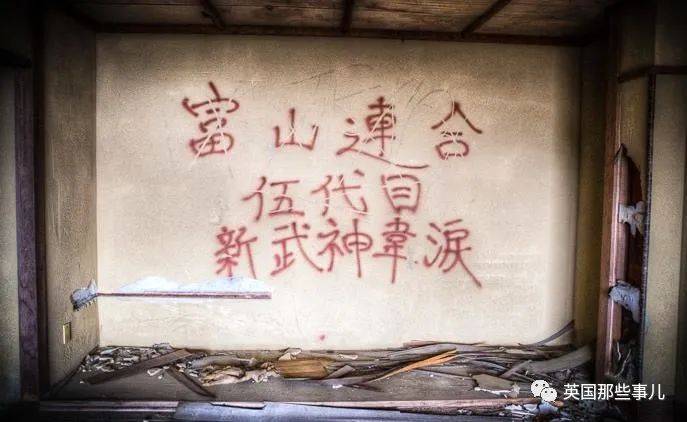 富山連合
伍代目
新武神韋涙
英国那些事儿